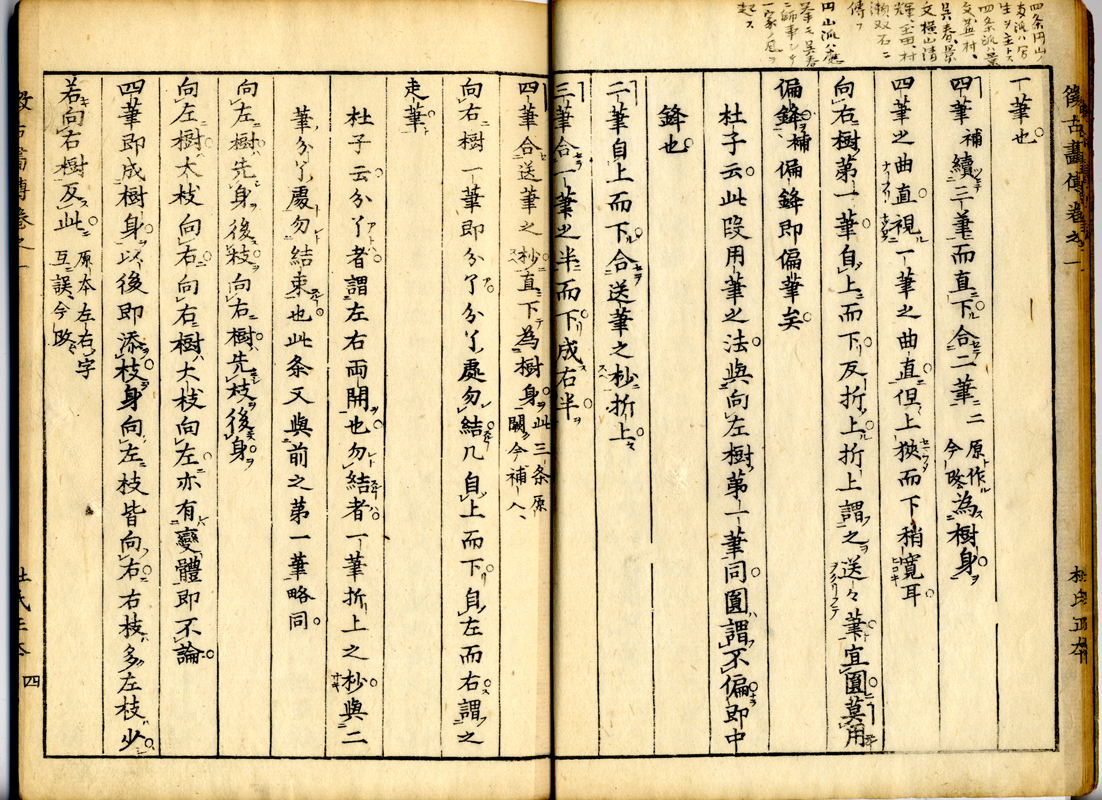 四条円山ノ
生ヲ主トス
四条派ハ景
文蓋村、
呉春、景
文横山清
輝、玉田、村
瀬双石ニ
傳フ
円山派ハ應
挙モ呉春
ニ師事シテ
一家ノ風ヲ
起ス
一筆也
四筆補續三筆而直下合二筆二原作今改為樹身
四筆之曲直視一筆之曲直但上狹而下稍寛耳
向右樹第一筆自上而下反折上折上謂之送々筆宜圓莫用
偏鋒補偏鋒即偏筆矣
杜子云此段用筆之法與向左樹第一筆同圓謂不偏即中
鋒也
二筆自上而下合送筆之杪折上
三筆合一筆之半而下成右半
四筆合送筆之杪直下為樹身此三条原闕今補入
向右樹一筆即分丫分丫處勿結几自上而下自左而右謂之
走筆
杜子云分丫者謂左右兩開也勿結者一筆折上之杪與二
筆分丫處勿結束也此条又與前之第一筆略同
向左樹先身後枝向右樹先枝後身
向左樹大枝向右向右樹大枝向左亦有變體即不論
四筆即成樹身以後即添枝身向左枝皆向右右枝多左枝少
若向右樹反此原本左右字互誤今改
四